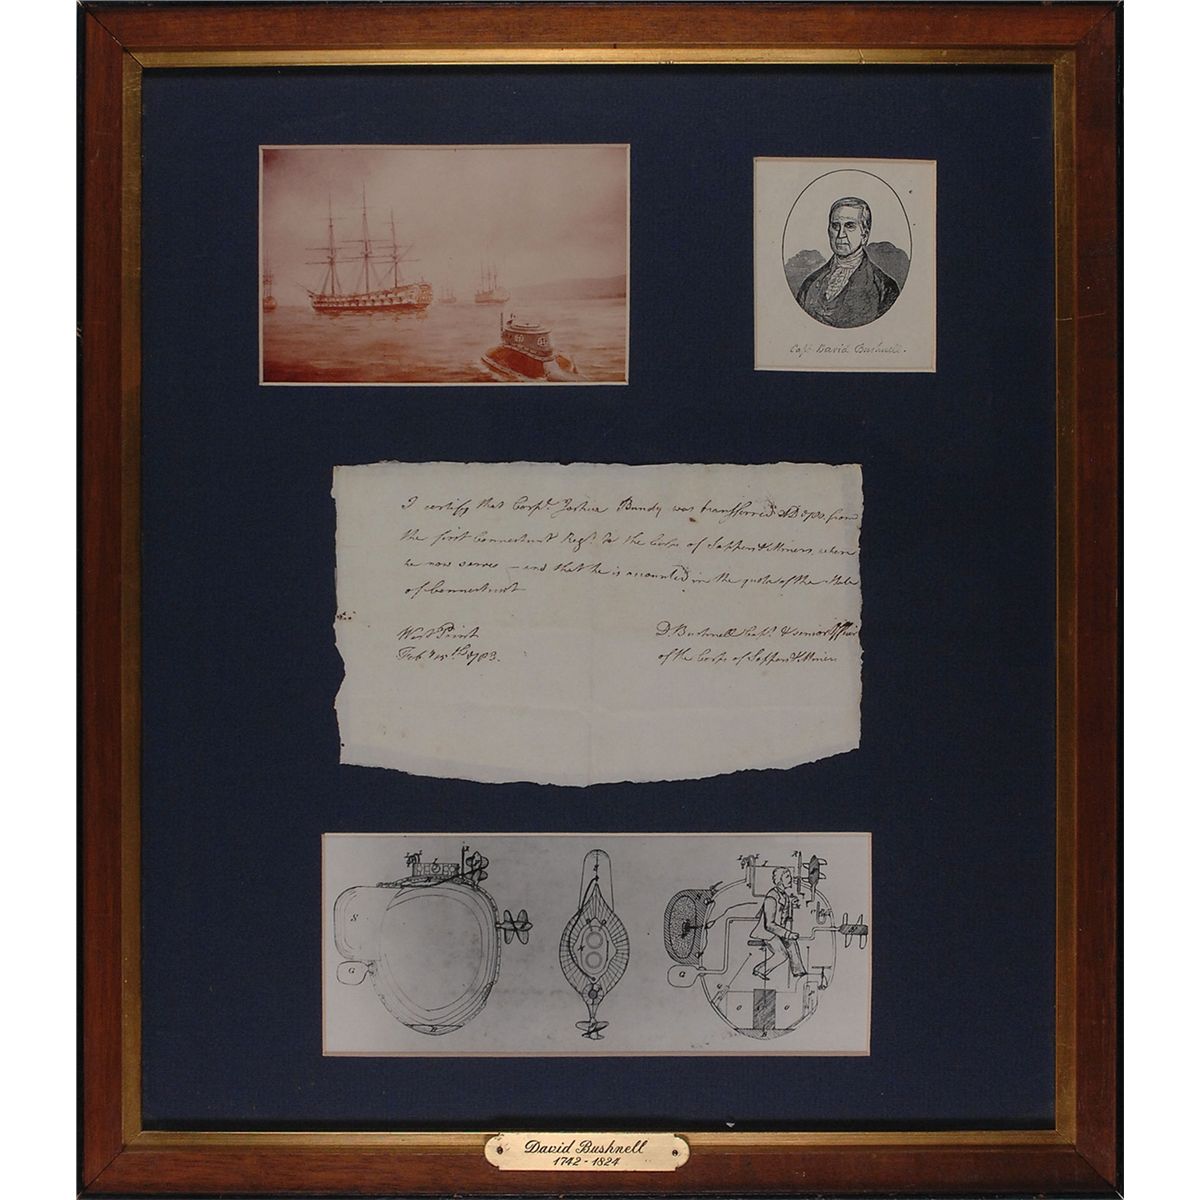 Capt David Bushnell.
I certify that Corpl. Joshua Bundy was transferred from
the first Connecticut Regt. to the Corps of Sappers & Miners, where
he now serves — and that he is accounted in the quota of the State
of Connecticut
West Point
Feb 15th 1783.
D. Bushnell Capt. & senior Officer
of the Corps of Sappers & Miners
S
G
G
O
O
B
David Bushnell
1742 - 1824